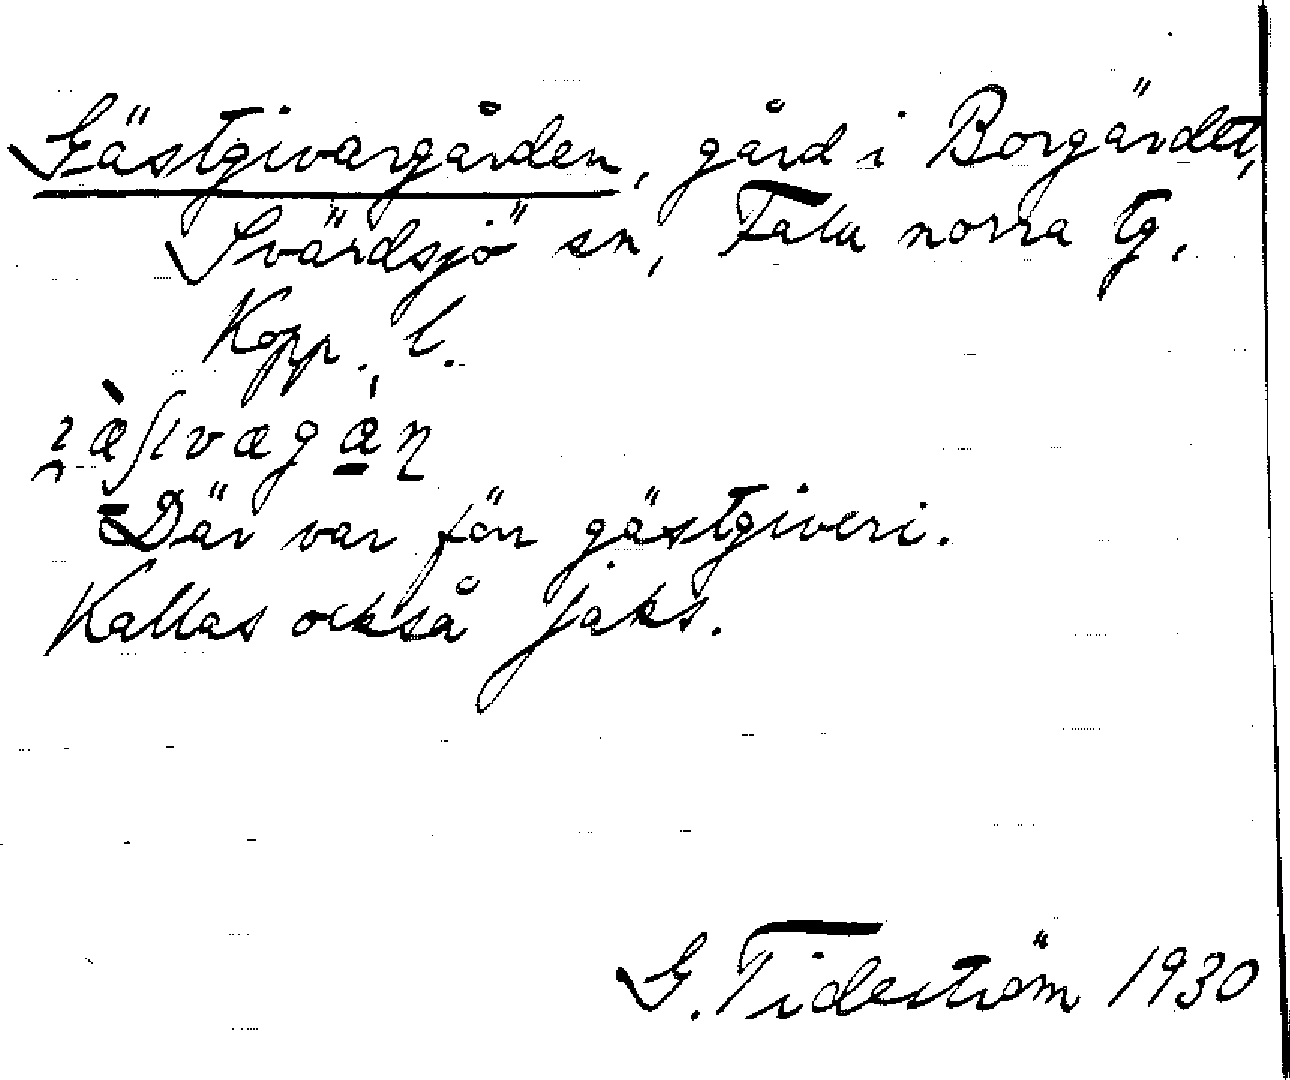 Gästgivargården, gård i Borgärdet,
Svärdsjö sn, Falu norra tg,
Kopp. l.
Där var förr gästgiveri.
Kallas också Jaks.
G. Tideström 1930